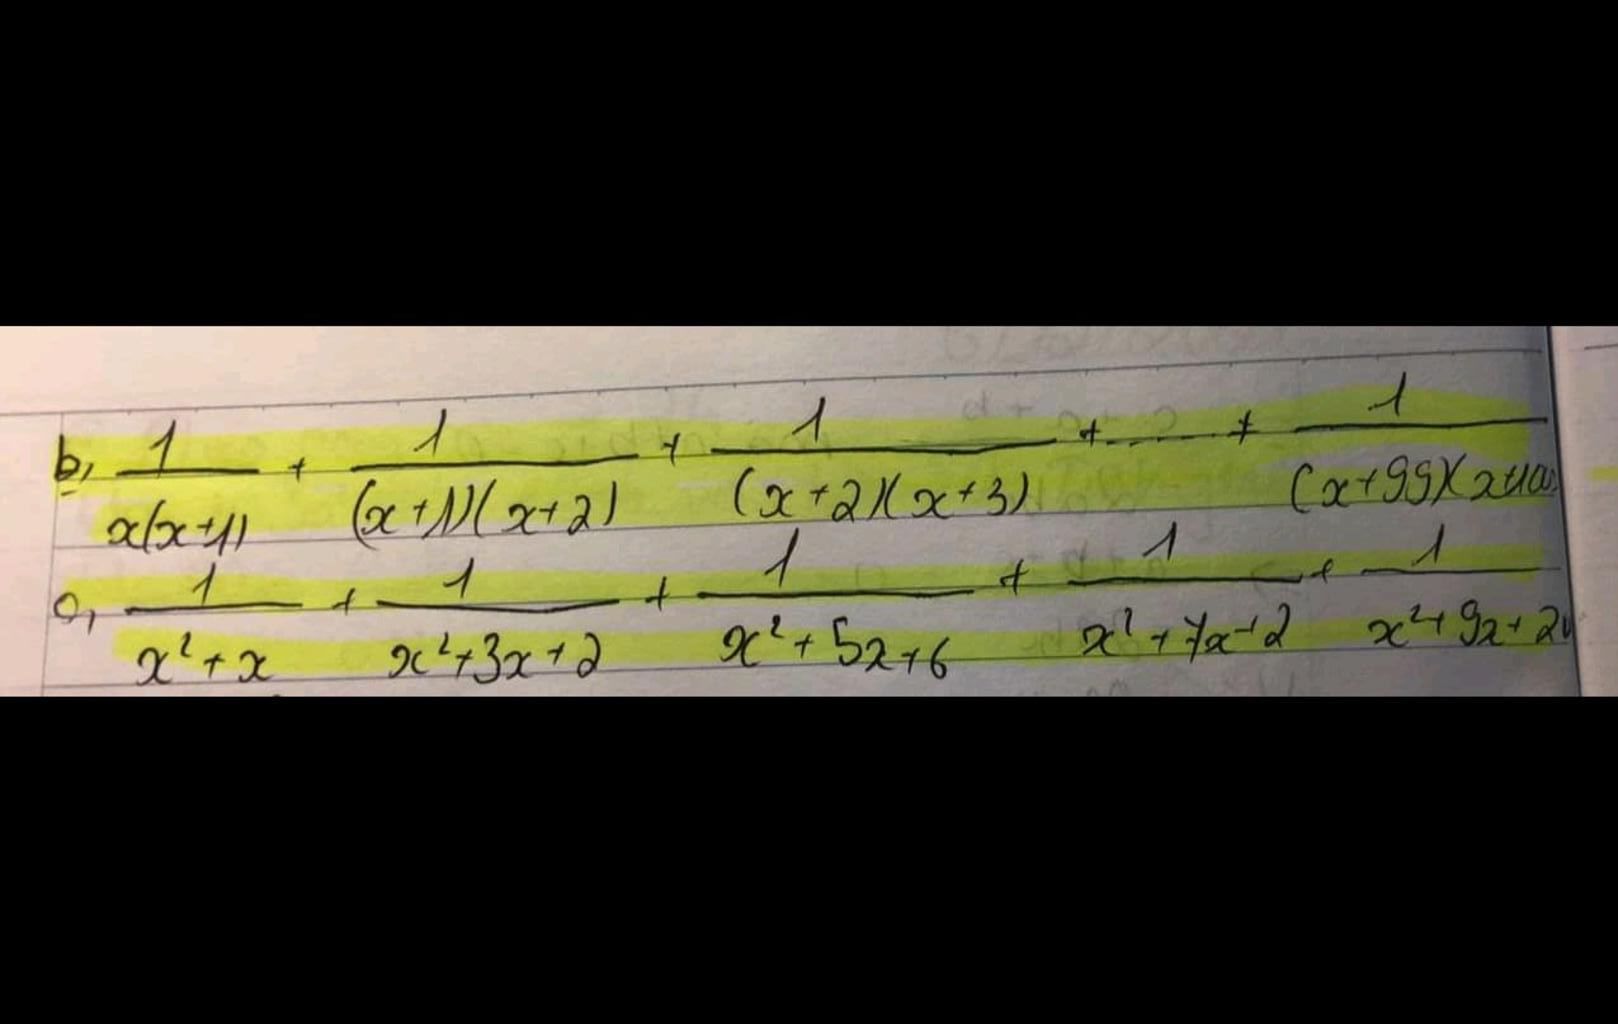 b, 1/(x(x+1)) + 1/((x+1)(x+2)) + 1/((x+2)(x+3)) + ...... + 1/((x+99)(x+100)
c, 1/(x²+x) + 1/(x²+3x+2) + 1/(x²+5x+6) + 1/(x²+7x+12) + 1/(x²+9x+20)